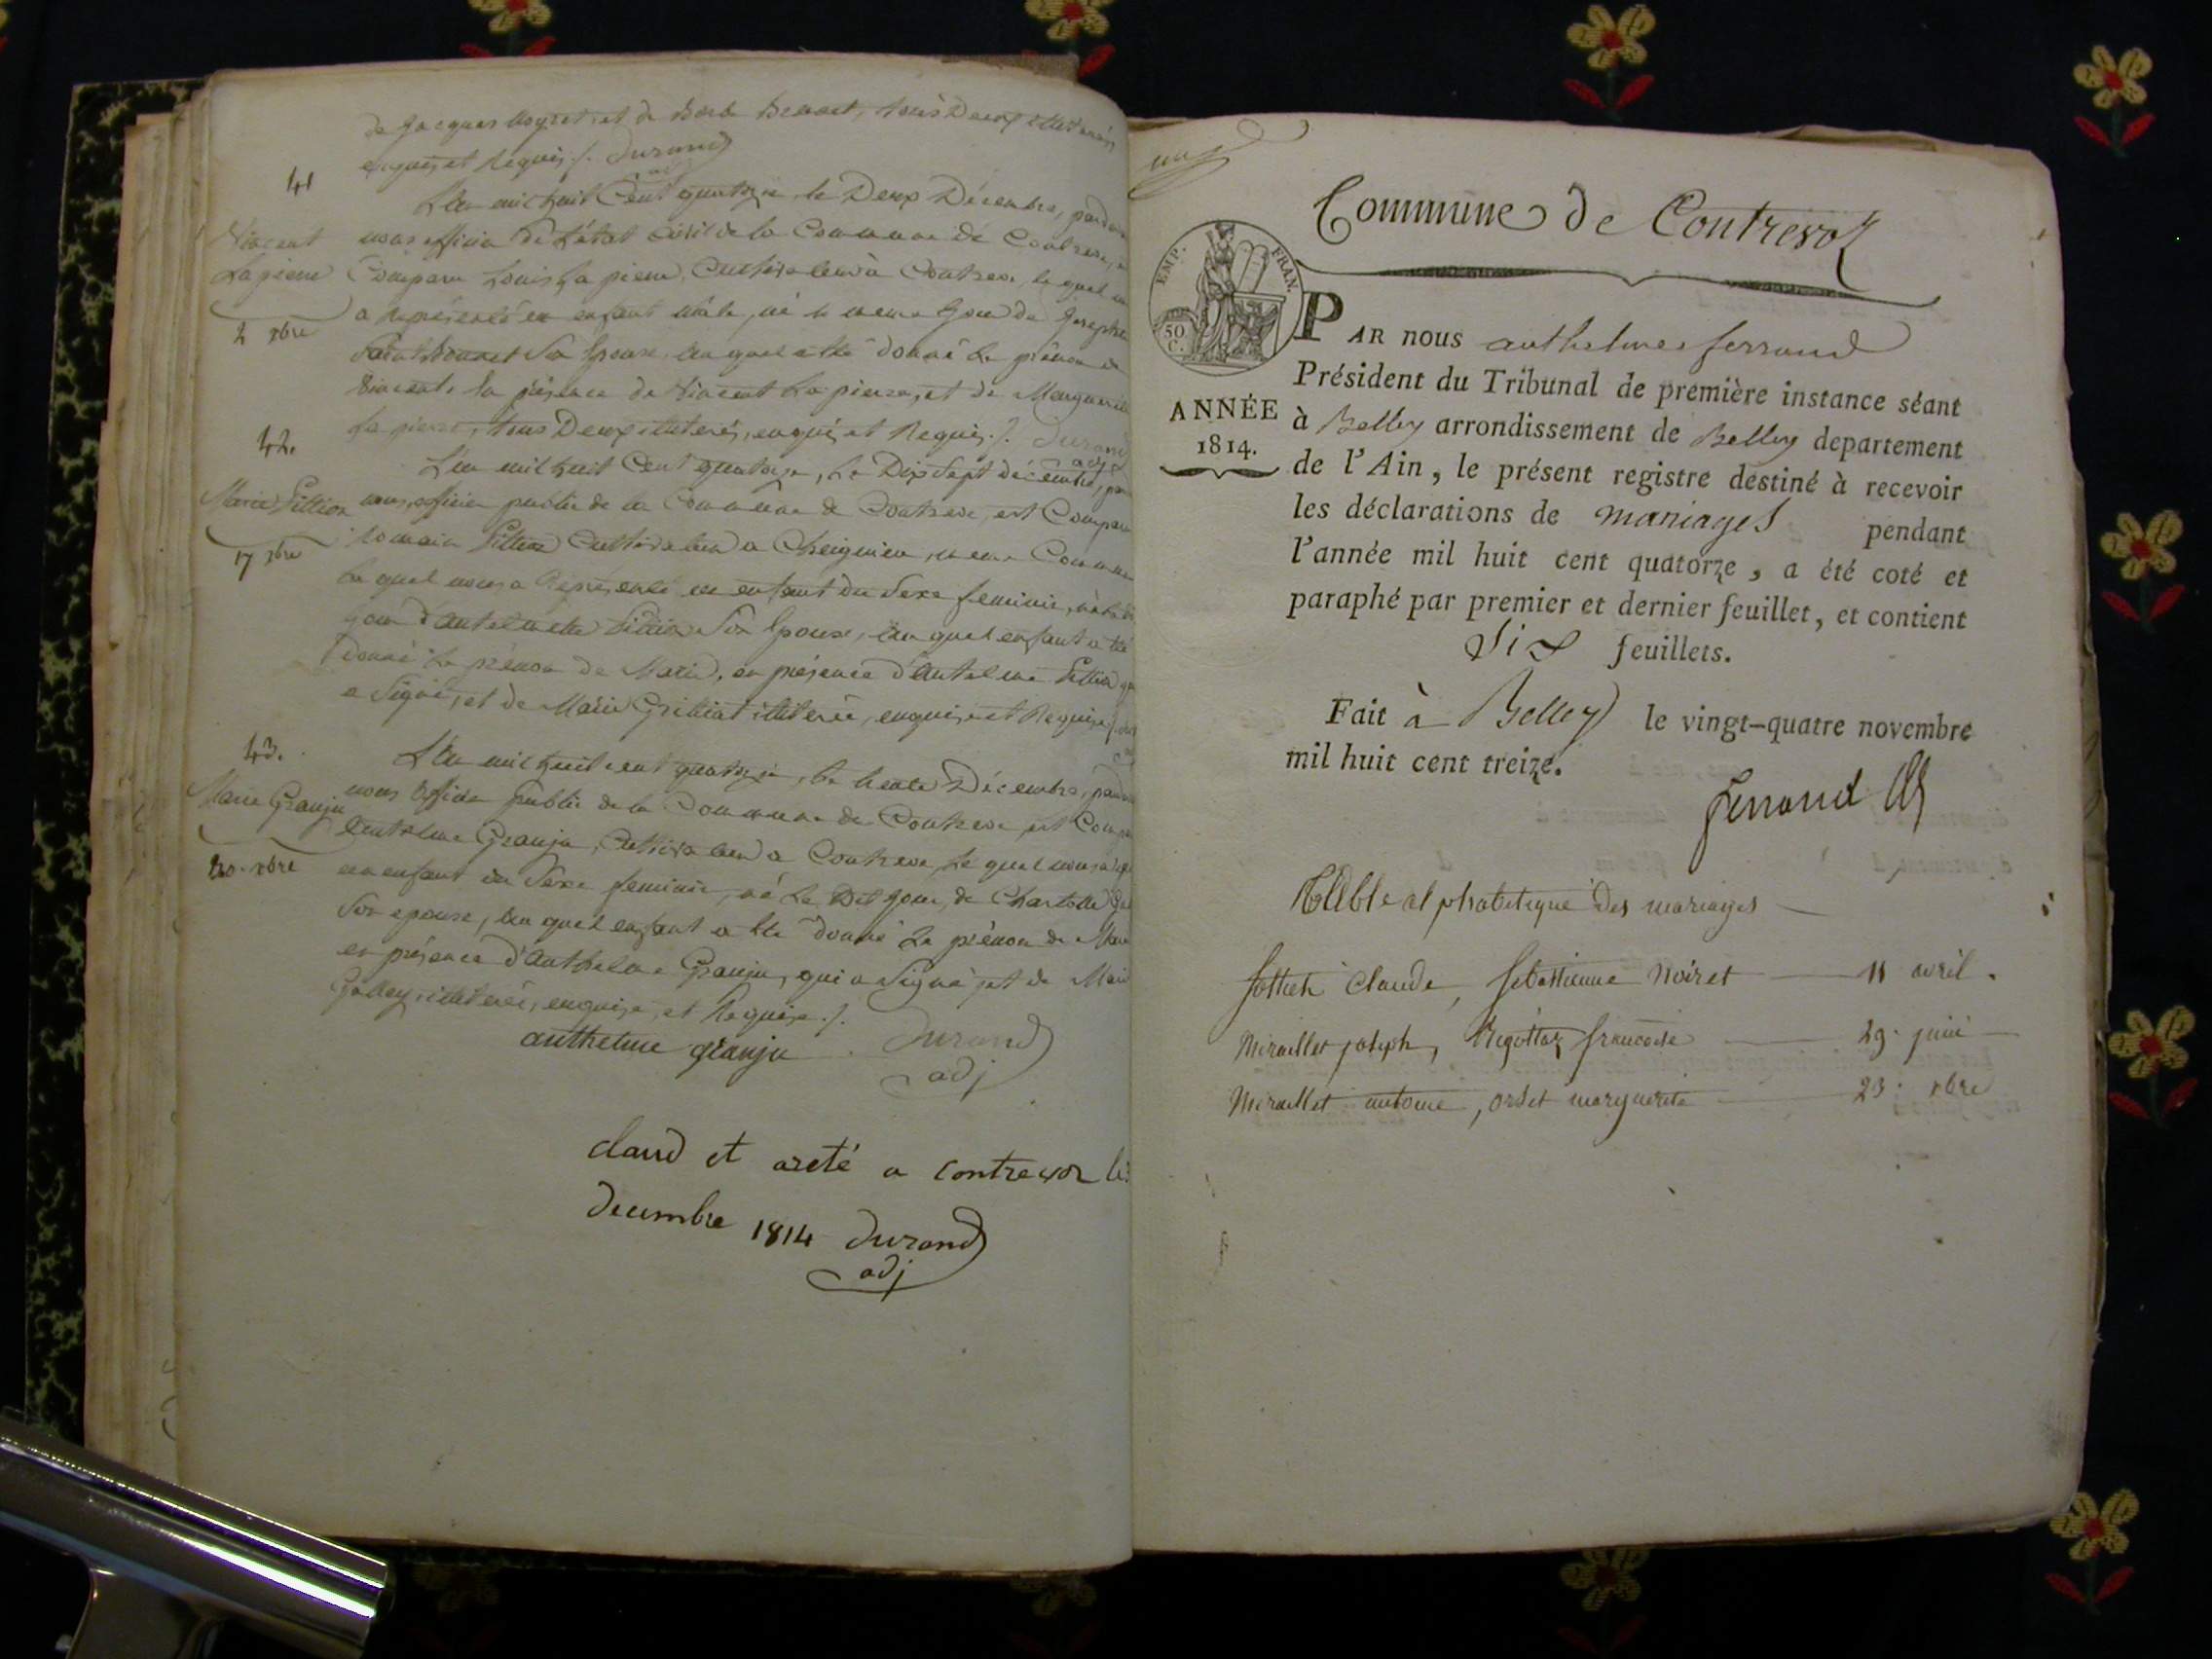 de Jacques et de Benoit, tous Deux illiterés
enquis et Requis ./. Durand
adj
41
Vincent
Lapierre
2 xbre
L'an mil huit Cent quatorze le Deux Décembre, pardevant
nous officier de L'état Civil de la Commune de Contrevoz,
Comparu Louis La pierre, Cultivateur à Contrevoz, le quel
a représenté un enfant mâle, né le meme Jour de Josephe
Son Epouse au quel a été donné Le prénom de
Vincent, En présence de Vincent La pierre, et de Marguerite
La pierre, tous Deux illiterés, enquis et Requis ./. Durand
adj
42.
Marie Pittion
17 xbre
L'an mil huit Cent quatorze, Le Dix Sept décembre,
nous, officier public de la Commune de Contrevoz, est Comparu
Romain Pittion Cultivateur a Cheignieu, meme Commune
Le quel nous a Représenté un enfant du Sexe feminin, né
Jour d'Antelmette Pittion Son Epouse, au quel enfant a été
donné Le prénom de Marie, en présence d'Antelme Pittion
a Signé, et de Marie illiterée, enquise et Requise
43.
Marie Granju
30. xbre
L'An mil huit cent quatorze, le trente Décembre,
nous Officier Public de la Commune de Contrevoz, est
Antelme Granju, Cultivateur a Contrevoz, Le quel nous a
un enfant du Sexe feminin, né Le Dit Jour, de
Son epouse, Au quel enfant a été donné Le prénom de Marie
en présence d'Anthelme Granju, qui a Signé, et de Marie
illiterée, enquise, et Requise ./.
anthelme granju Durand
adj
claud et areté a contrevoz le
decembre 1814 Durand
adj
Commune de Contrevoz
EMP. FRAN.
50
C.
ANNÉE
1814.
PAR nous anthelme ferrand
Président du Tribunal de première instance séant
à Belley arrondissement de Belley departement
de l'Ain, le présent registre destiné à recevoir
les déclarations de mariages pendant
l'année mil huit cent quatorze, a été coté et
paraphé par premier et dernier feuillet, et contient
Six feuillets.
Fait à Belley le vingt-quatre novembre
mil huit cent treize.
ferrand
Table alphabetique des mariages
Claude, Sebastienne Noiret 11 avril.
Miraillet joseph, francoise 29. juin
Miraillet antoine, ordet marguerite 23. xbre